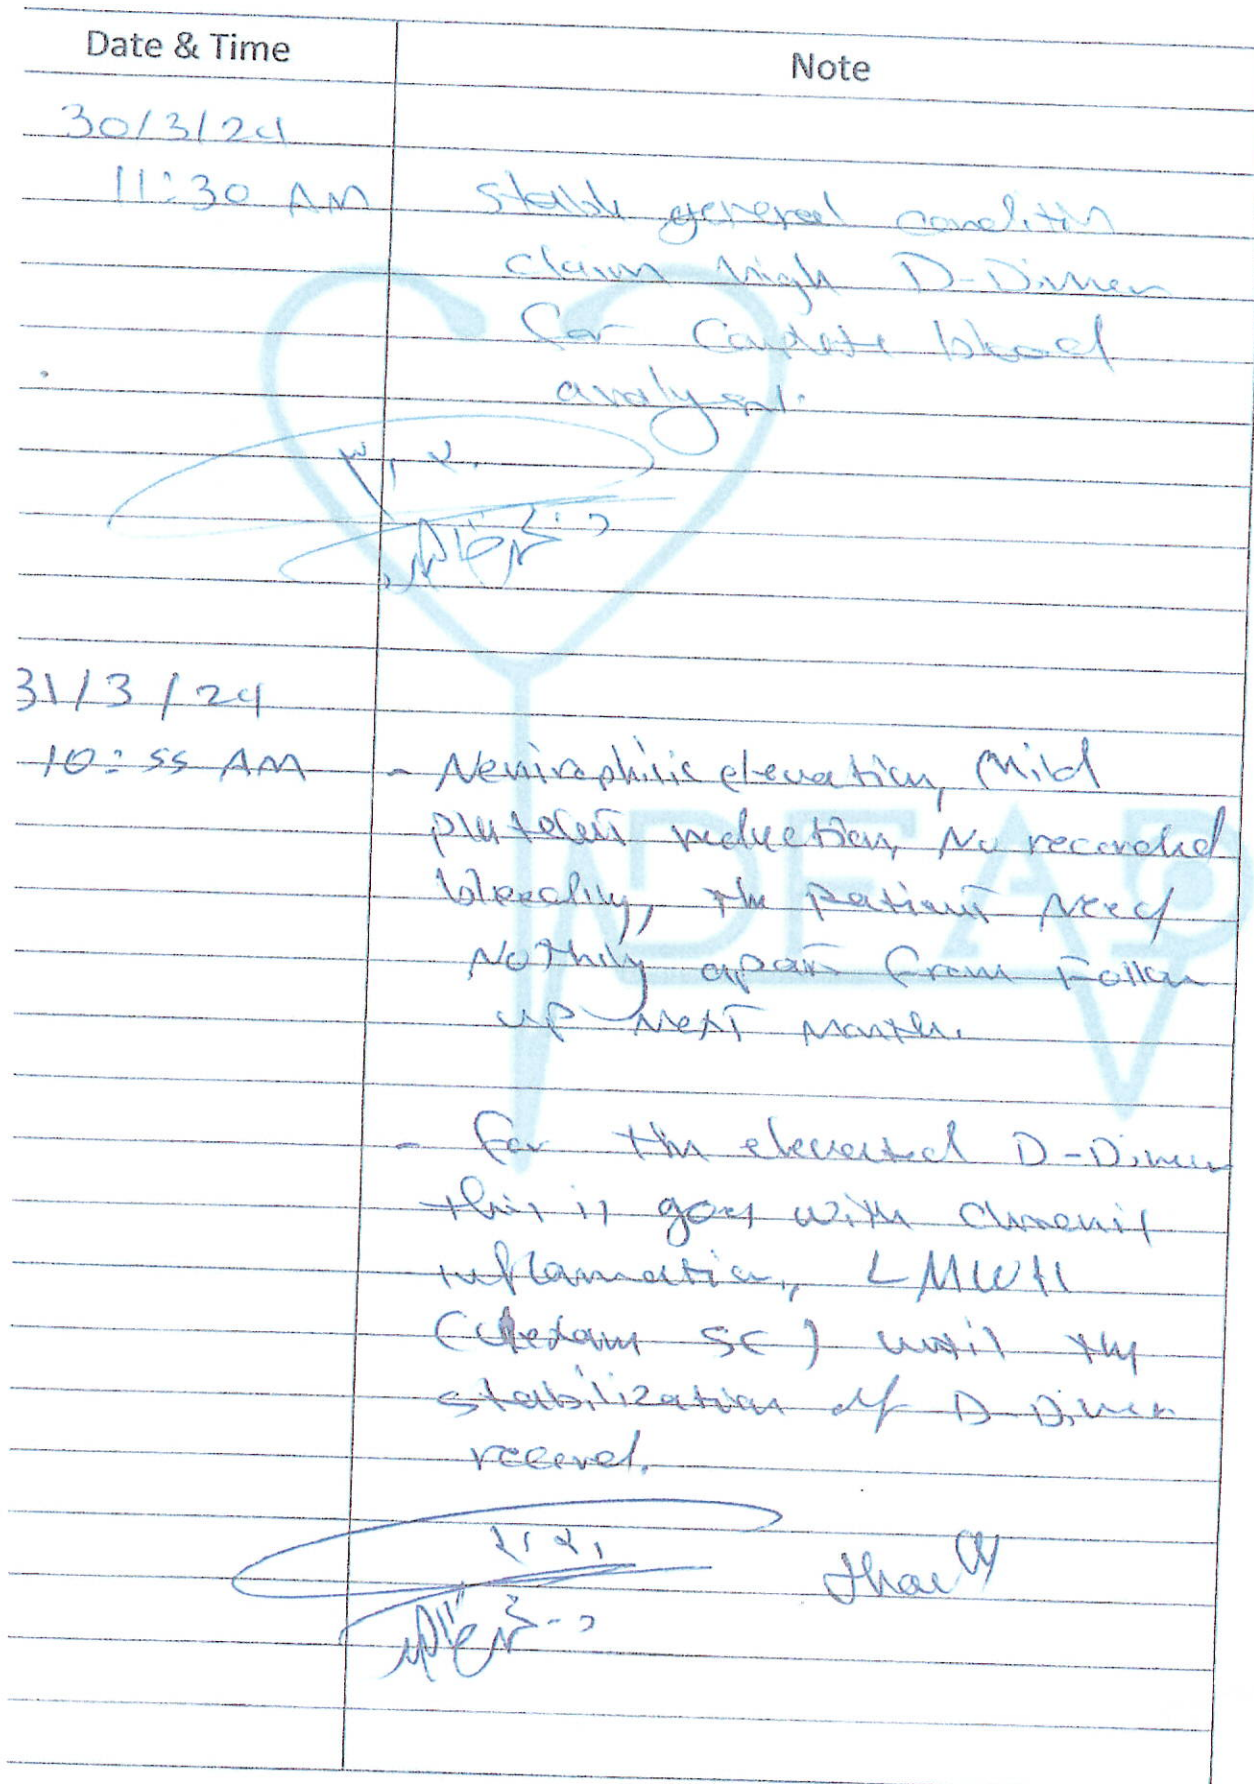 Date & Time
Note
30/3/24
11:30 AM
stable general condition
claim high D-Dimer
for Complete blood
analysis.
31/3/24
10:55 AM
- Neutrophilic elevation, Mild
platelet reduction, No recorded
bleeding, the patient need
Nothing apart from Follow
up next month.
- for the elevated D-Dimer
this is goes with chronic
inflamation, LMWH
(Clexan SC) until the
stabilization of D-Dimer
Thank